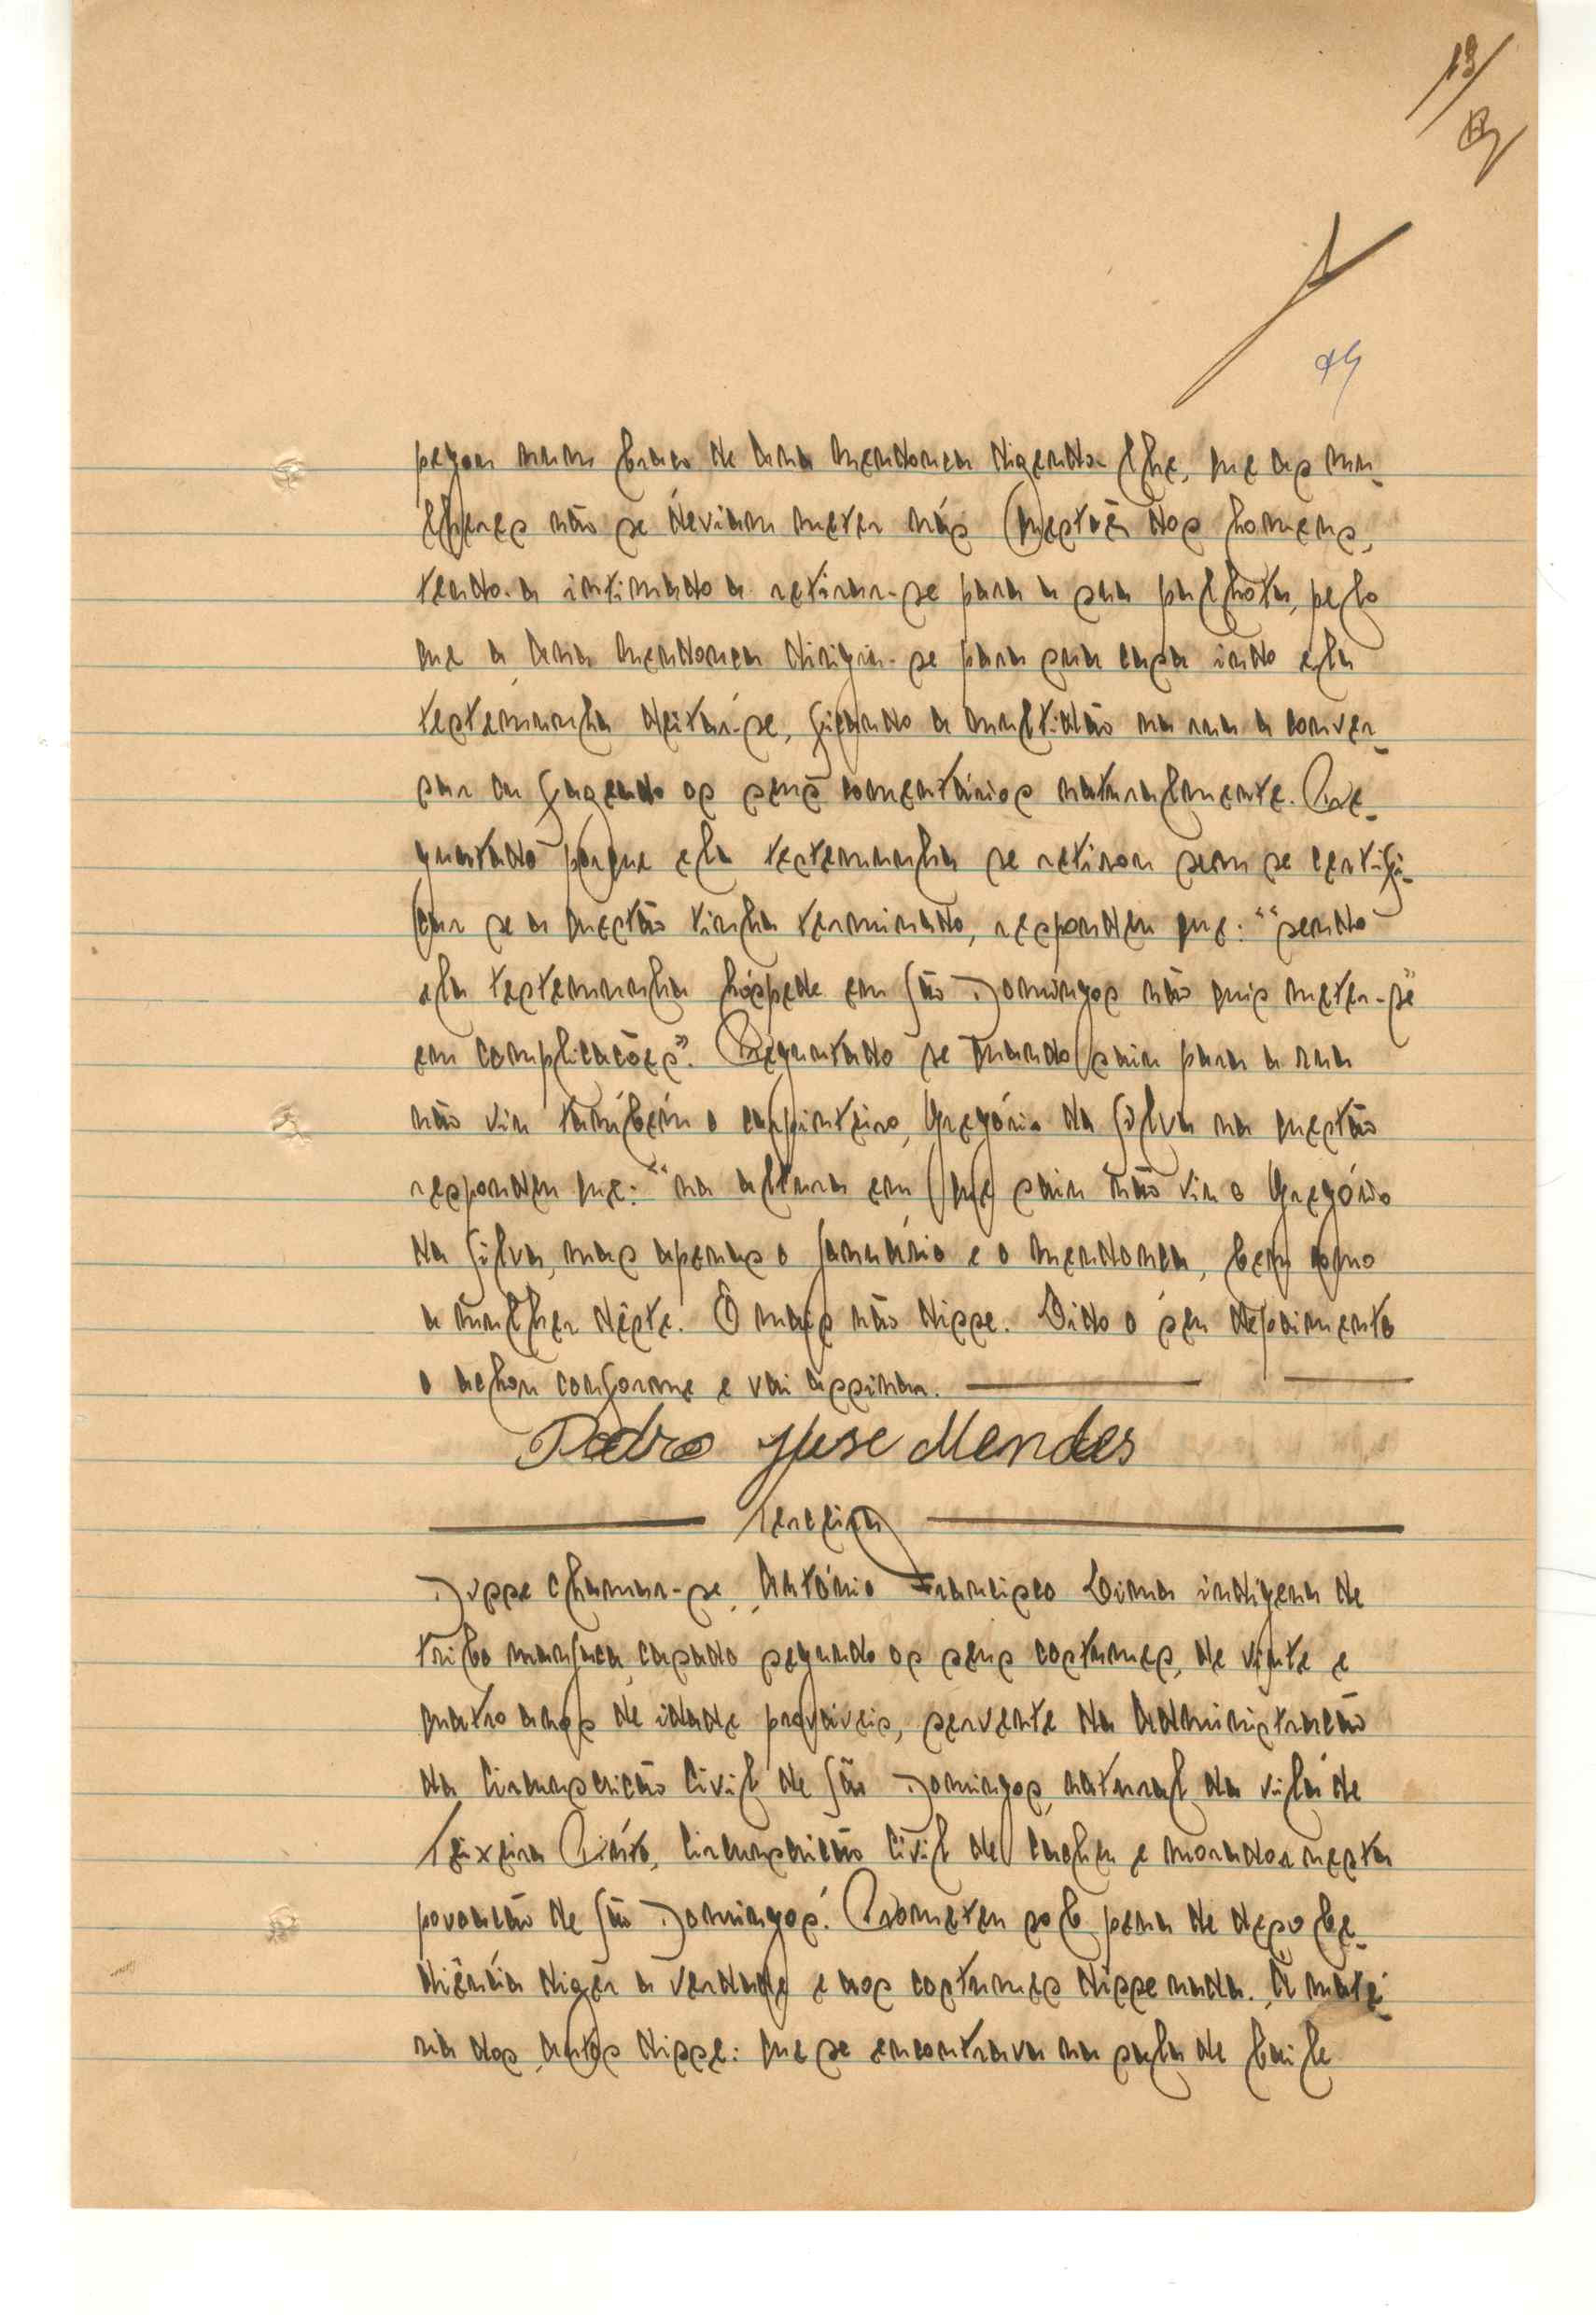 13
pegou num braço de Ana Mendonça dizendo-lhe, que as mu-
lheres não se deviam meter nas questões dos homens,
tendo-a intimado a retirar-se para a sua palhota, pelo
que a Ana Mendonça dirigiu-se para sua casa indo ela
testemunha deitar-se, ficando a multidão na rua a conver-
sar ou fazendo os seus comentários naturalmente. Pre-
guntado porque ela testemunha se retirou sem se certifi-
car se a questão tinha terminado, respondeu que: ““sendo
ela testemunha hóspede em São Domingos não quis meter-se”
em complicações”. Preguntado se quando saiu para a rua
não viu também o carpinteiro, Gregório da Silva na questão
respondeu que: ““na altura em que saiu não viu o Gregório
da Silva, mas apenas o Januário e o Mendonça, bem como
a mulher dêste. E mais não disse. Lido o seu depoimento
o achou conforme e vai assinar.
Pedro Jose Mendes
Terceira
Disse chamar-se, António Francisco Lima indígena de
tribo manjaca, casado segundo os seus costumes, de vinte e
quatro anos de idade prováveis, servente da Administração
da Circunscrição Civil de São Domingos, natural da vila de
Teixeira Pinto, Circunscrição Civil de Cacheu e morador nesta
povoação de São Domingos. Prometeu sob pena de desobe-
diência dizer a verdade e aos costumes disse nada. À maté-
ria dos autos disse: que se encontrava na sala de baile